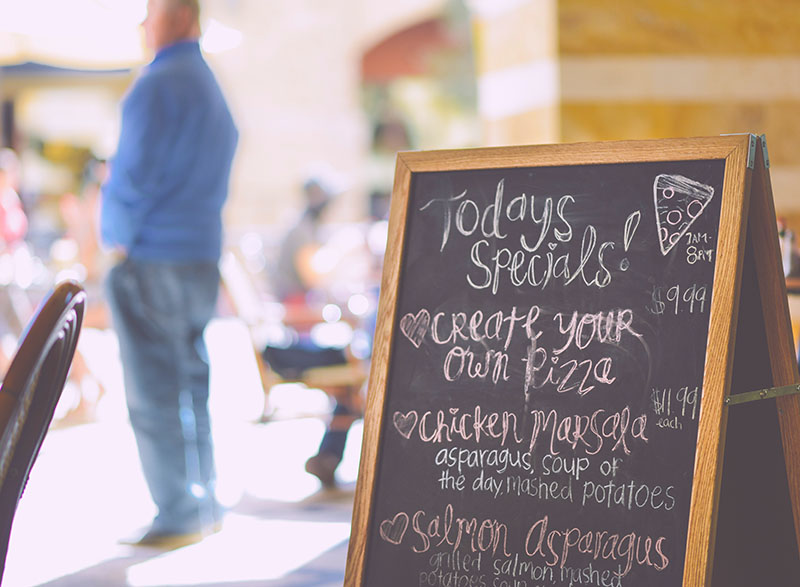 Todays
Specials!
7AM-
8PM
$9.99
Create your
own pizza
$11.99
each
Chicken Marsala
asparagus, soup of
the day, mashed potatoes
Salmon Asparagus
grilled salmon, mashed
potatoes soup